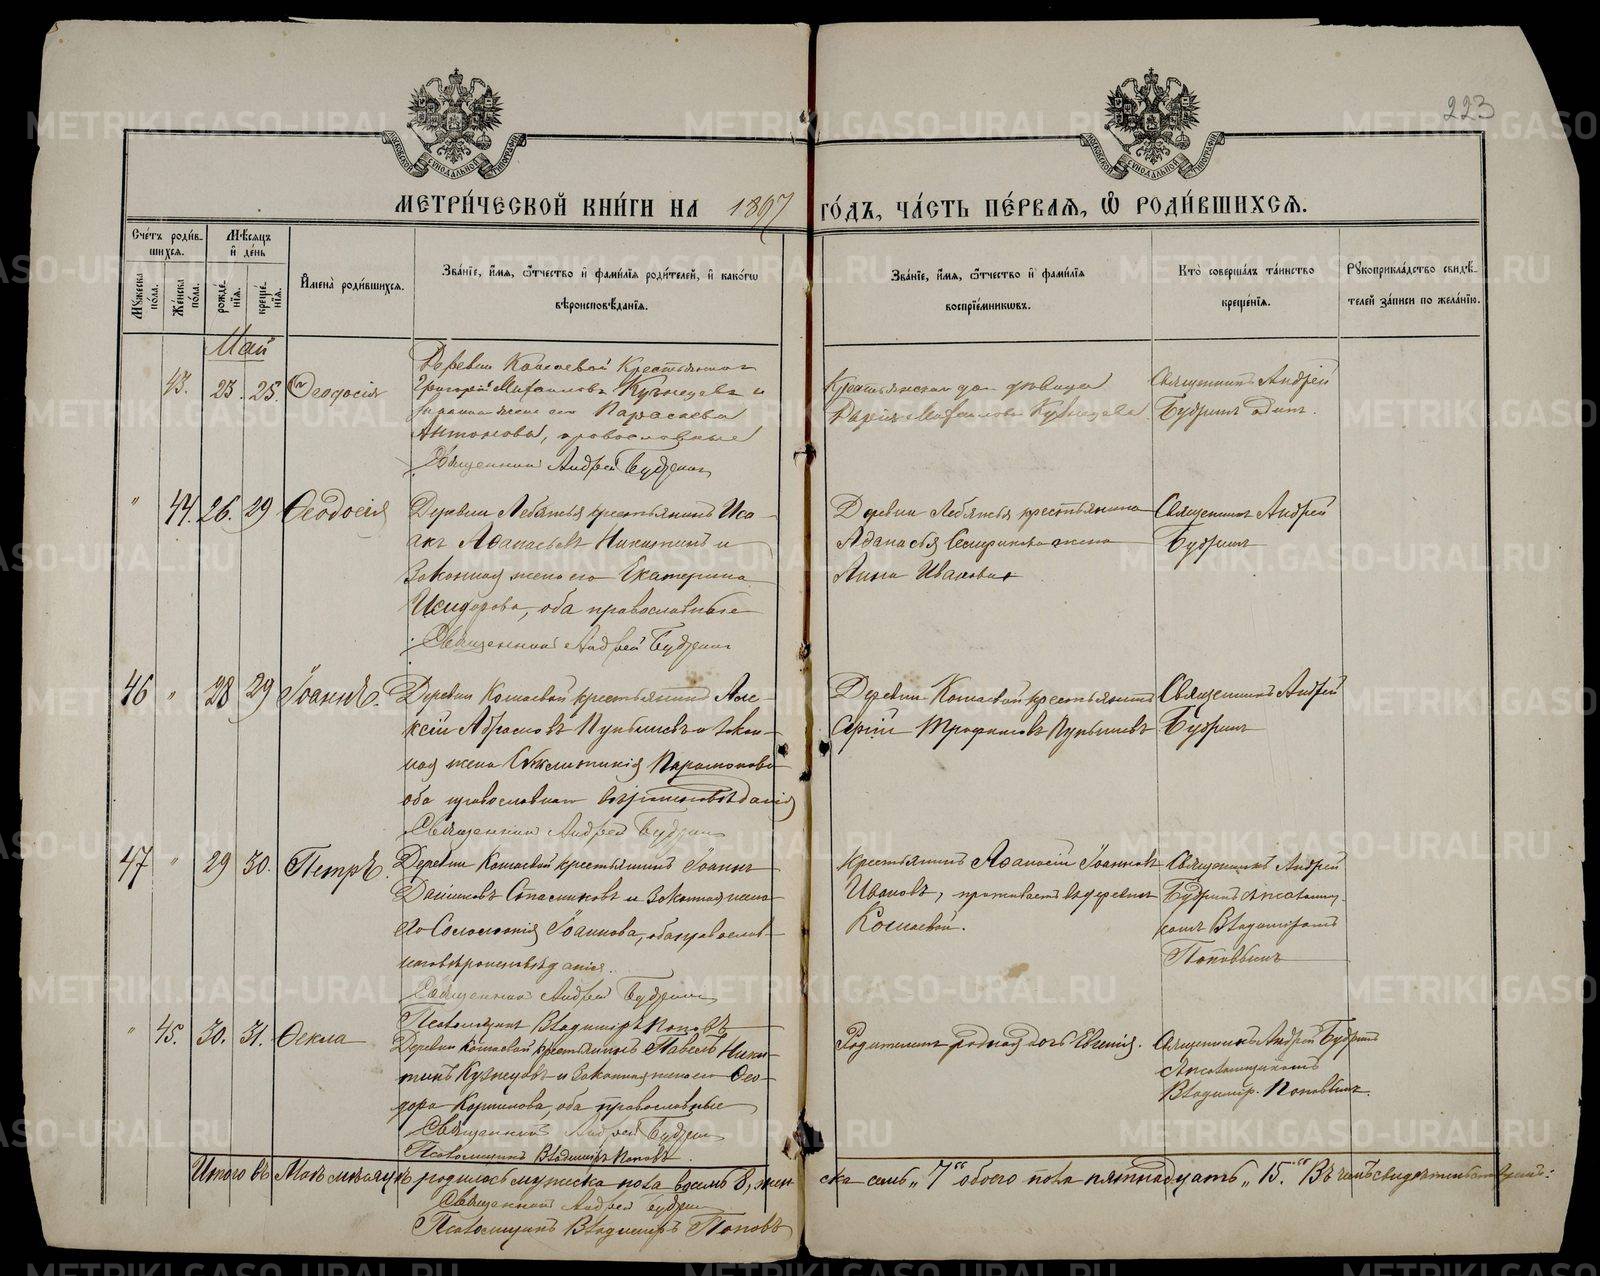 223
МОСКОВСКОЙ СѴНОДАЛЬНОЙ ТИПОГРАФІИ
МОСКОВСКОЙ СѴНОДАЛЬНОЙ ТИПОГРАФІИ
МЕТРИ́ЧЕСКОЙ КНИ́ГИ НА 1897 ГО́ДЪ, ЧА́СТЬ ПЕ́РВАЯ, Ѡ РОДИ́ВШИХСЯ.
Сче́тъ роди́в-
шихся.
Мѣ́сяцъ
и҆ де́нь
Мꙋ́жеска
по́ла.
Же́нска
по́ла.
рожде́-
нїя.
креще́-
нїя.
И҆мена̀ роди́вшихся.
Зва́нїе, и҆́мя, ѻ҆́тчество и҆ фами́лїя роди́телей, и҆ како́гѡ
вѣроисповѣ́данїя.
Зва́нїе, и҆́мя, ѻ҆́тчество и҆ фами́лїя
воспрїе́мникѡвъ.
Кто̀ соверша́лъ та́инство
креще́нїя.
Рꙋкоприкла́дство свидѣ́-
телей за́писи по жела́нїю.
Май
43. 23. 25. Ѳеодосія
Деревни Кошаевой Крестьянинъ
Григорій Михаиловъ Кузнецовъ и
законная жена его Параскева
Антонова, православные
Священникъ Андрей Будринъ
Крестьянская дочь девица
Дарія Михаилова Кузнецова
Священникъ Андрей
Будринъ один.
" 44. 26. 29 Ѳеодосія
Деревни Лебяжья крестьянинъ Иса-
акъ Аѳанасьевъ Никитинъ и
Законная жена его Екатерина
Исидорова, оба православные
Священникъ Андрей Будринъ
Деревни Лебяжья крестьянина
Аѳанасія жена
Анна Иванова
Священникъ Андрей
Будринъ
46 " 28 29 Іоаннъ.
Деревни Кошаевой крестьянинъ Але-
ксій и закон-
ная жена Парамонова
оба православнаго вероисповѣданія
Священникъ Андрей Будринъ
Деревни Кошаевой крестьянинъ
Сергій Трофимовъ
Священникъ Андрей
Будринъ
47 " 29 30. Петръ.
Деревни Кошаевой крестьянинъ Іоаннъ
и Законная жена
его Соломонія Іоаннова, оба православ-
наго вѣроисповѣданія.
Священникъ Андрей Будринъ
Псаломщикъ Владиміръ Поповъ
Крестьянинъ Аѳанасій Іоанновъ
Ивановъ, проживаетъ въ деревне
Кошаевой.
Священникъ Андрей
Будринъ с псаломщи-
комъ Владиміромъ
Поповымъ
" 45. 30. 31. Ѳекла
Деревни Кошаевой крестьянинъ Павелъ Ники-
тинъ Кузнецовъ и Законная жена его Ѳео-
дора Корнилова, оба православные
Священникъ Андрей Будринъ
Псаломщикъ Владиміръ Поповъ.
Родителямъ родная дочь Евгенія.
Священникъ Андрей Будринъ
с Псаломщикомъ
Владимір. Поповымъ.
Итого въ Маѣ мѣсяцѣ родилось мужеска пола восемь 8, жен-
ска семь „7“ обоего пола пятнадцать „15.“ Въ чемъ свидетельствуемъ:
Священникъ Андрей Будринъ
Псаломщикъ Владиміръ Поповъ
METRIKI.GASO-URAL.RU